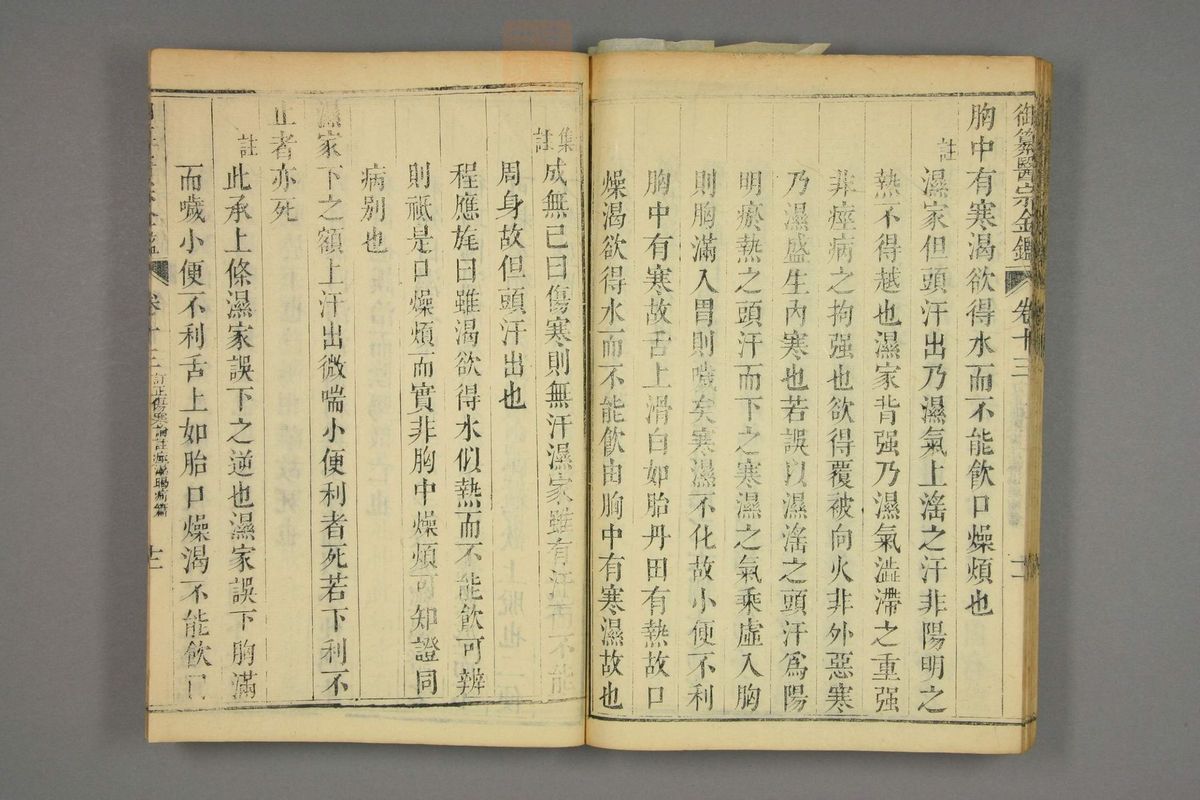 御纂醫宗金鑑 卷十三
胸中有寒渴欲得水而不能飲口燥煩也
註
濕家但頭汗出乃濕氣上淫之汗非陽明之
熱不得越也濕家背强乃濕氣澁滯之重强
非痙病之拘强也欲得覆被向火非外惡寒
乃濕盛生內寒也若誤以濕淫之頭汗爲陽
明瘀熱之頭汗而下之寒濕之氣乘虛入胸
則胸滿入胃則噦矣寒濕不化故小便不利
胸中有寒故舌上滑白如胎丹田有熱故口
燥渴欲得水而不能飲由胸中有寒濕故也
集註
成無已曰傷寒則無汗濕家雖有汗而不能
周身故但頭汗出也
程應旄曰雖渴欲得水似熱而不能飲可辨
則祇是口燥煩而實非胸中燥煩可知證同
病别也
濕家下之額上汗出微喘小便利者死若下利不
止者亦死
註
此承上條濕家誤下之逆也濕家誤下胸滿
而噦小便不利舌上如胎口燥渴不能飲口
卷十三 訂正傷寒論註 篇